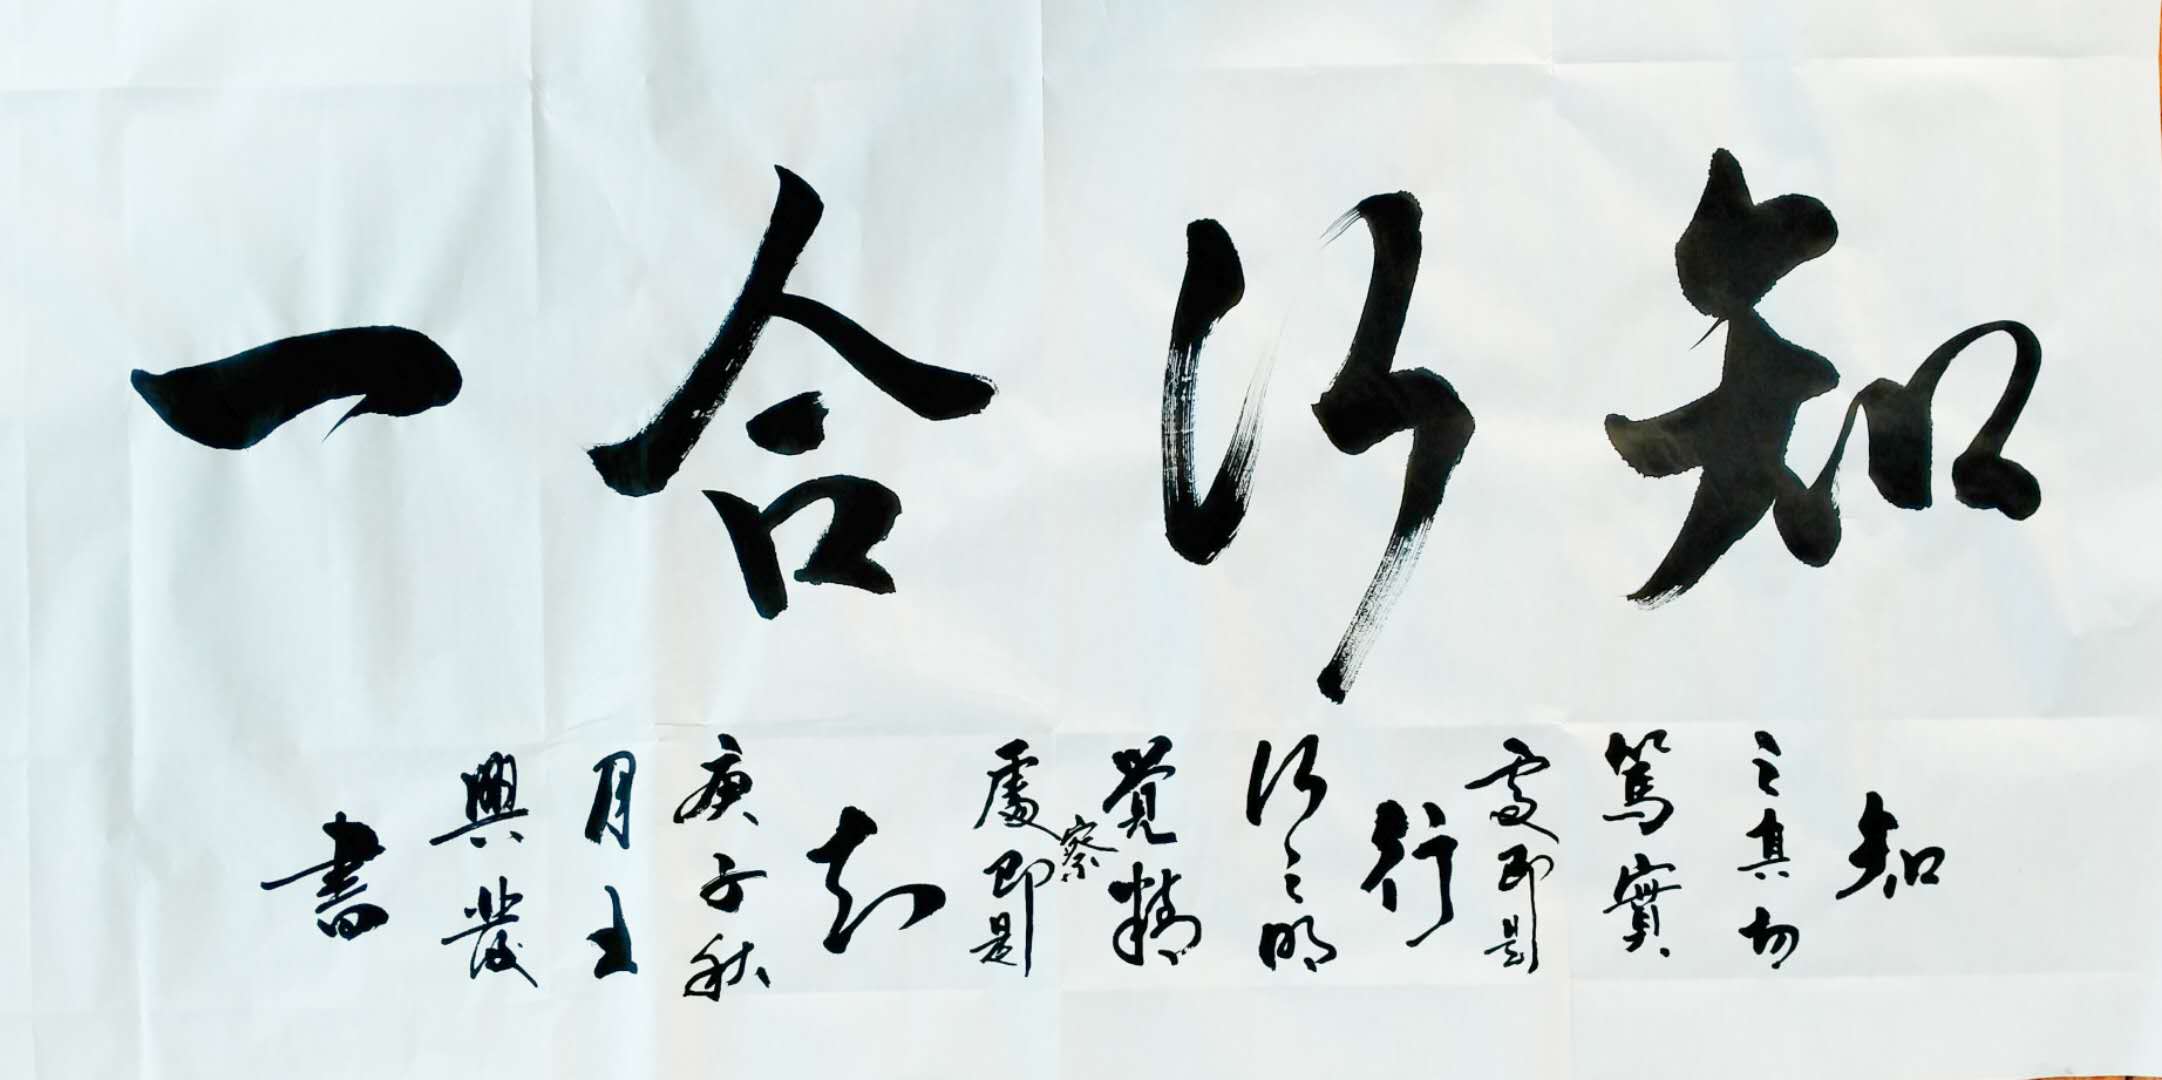 知行合一
知
之真切
篤實
處即是
行
行之明
覺精察
處即是
知
庚子秋
月王
興發
書